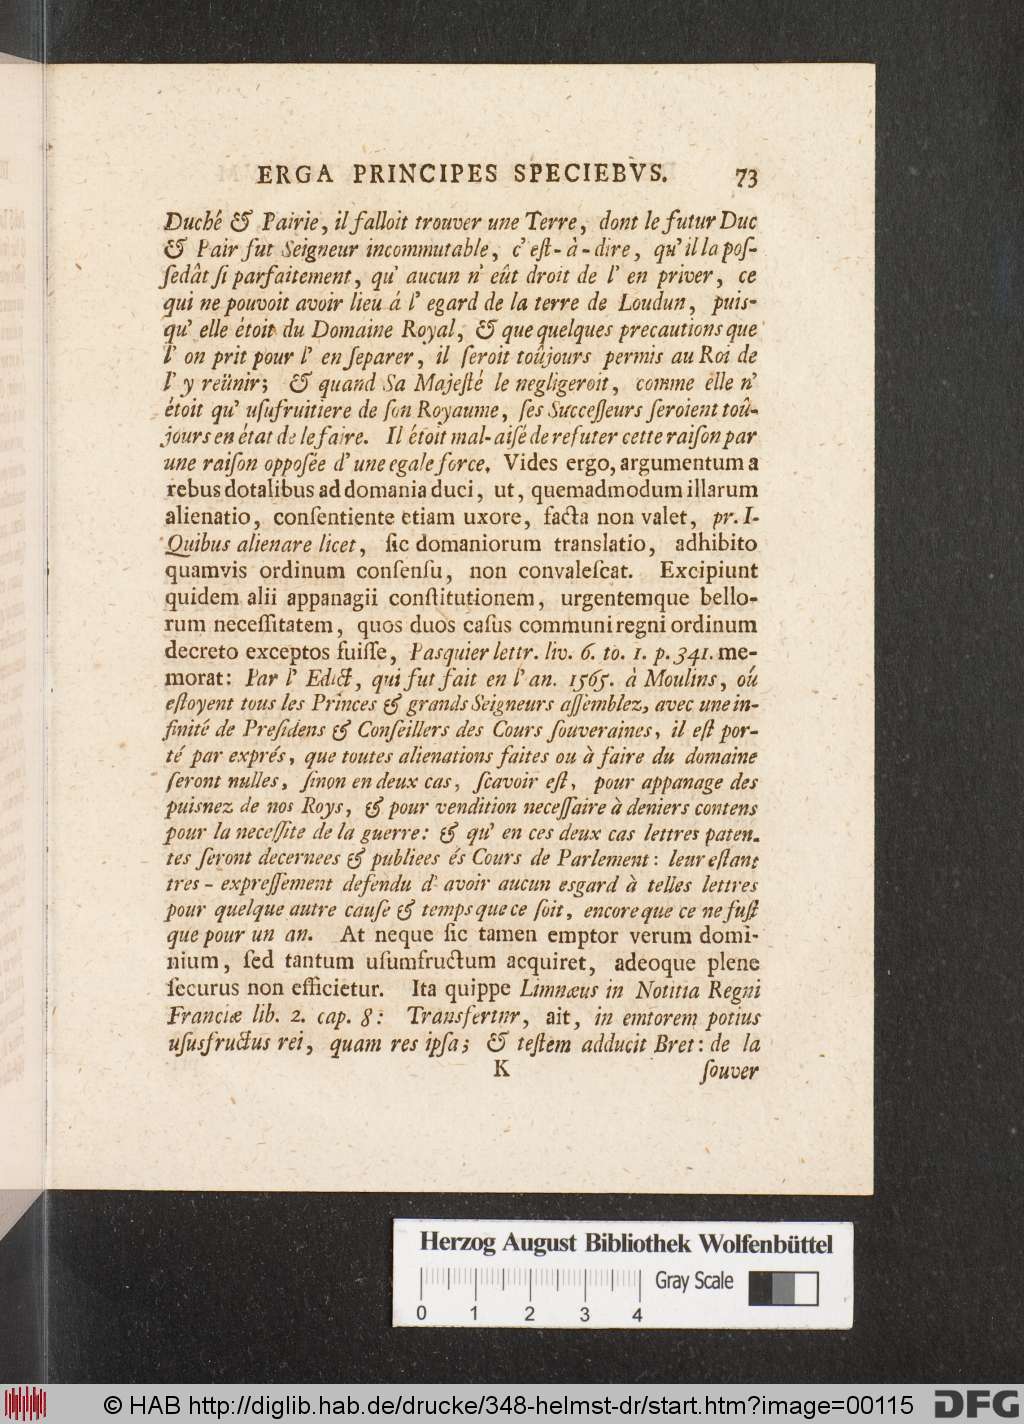 ERGA PRINCIPES SPECIEBVS. 73
Duché & Pairie, il falloit trouver une Terre, dont le futur Duc
& Pair fut Seigneur incommutable, c'eſt-à-dire, qu'il la poſ-
ſedât ſi parfaitement, qu' aucun n' eût droit de l' en priver, ce
qui ne pouvoit avoir lieu á l' egard de la terre de Loudun, puis-
qu' elle étoit du Domaine Royal, & que quelques precautions que
l' on prit pour l' en ſeparer, il ſeroit toûjours permis au Roi de
l' y reünir; & quand Sa Majeſté le negligeroit, comme elle n'
étoit qu' uſufruitiere de ſon Royaume, ſes Succeſſeurs ſeroient toû-
jours en état de le faire. Il étoit mal-aiſé de refuter cette raiſon par
une raiſon oppoſée d' une egale force. Vides ergo, argumentum a
rebus dotalibus ad domania duci, ut, quemadmodum illarum
alienatio, conſentiente etiam uxore, facta non valet, pr. I-
Quibus alienare licet, ſic domaniorum translatio, adhibito
quamvis ordinum conſenſu, non convaleſcat. Excipiunt
quidem alii appanagii conſtitutionem, urgentemque bello-
rum neceſſitatem, quos duos caſus communi regni ordinum
decreto exceptos fuiſſe, Pasquier lettr. liv. 6. to. 1. p. 341. me-
morat: Par l' Edict, qui fut fait en l' an. 1565. à Moulins, oú
eſtoyent tous les Princes & grands Seigneurs aſſemblez, avec une in-
finité de Preſidens & Conſeillers des Cours ſouveraines, il eſt por-
té par exprés, que toutes alienations faites ou à faire du domaine
ſeront nulles, ſinon en deux cas, ſcavoir eſt, pour appanage des
puisnez de nos Roys, & pour vendition neceſſaire à deniers contens
pour la neceſſite de la guerre: & qu' en ces deux cas lettres paten-
tes ſeront decernees & publiees és Cours de Parlement: leur eſtant
tres-expreſſement defendu d' avoir aucun esgard à telles lettres
pour quelque autre cauſe & temps que ce ſoit, encore que ce ne fuſt
que pour un an. At neque ſic tamen emptor verum domi-
nium, ſed tantum uſumfructum acquiret, adeoque plene
ſecurus non efficietur. Ita quippe Limnæus in Notitia Regni
Franciæ lib. 2. cap. 8: Transfertnr, ait, in emtorem potius
uſusfructus rei, quam res ipſa; & teſtem adducit Bret: de la
K ſouver
Herzog August Bibliothek Wolfenbüttel
Gray Scale
0 1 2 3 4
© HAB http://diglib.hab.de/drucke/348-helmst-dr/start.htm?image=00115
DFG